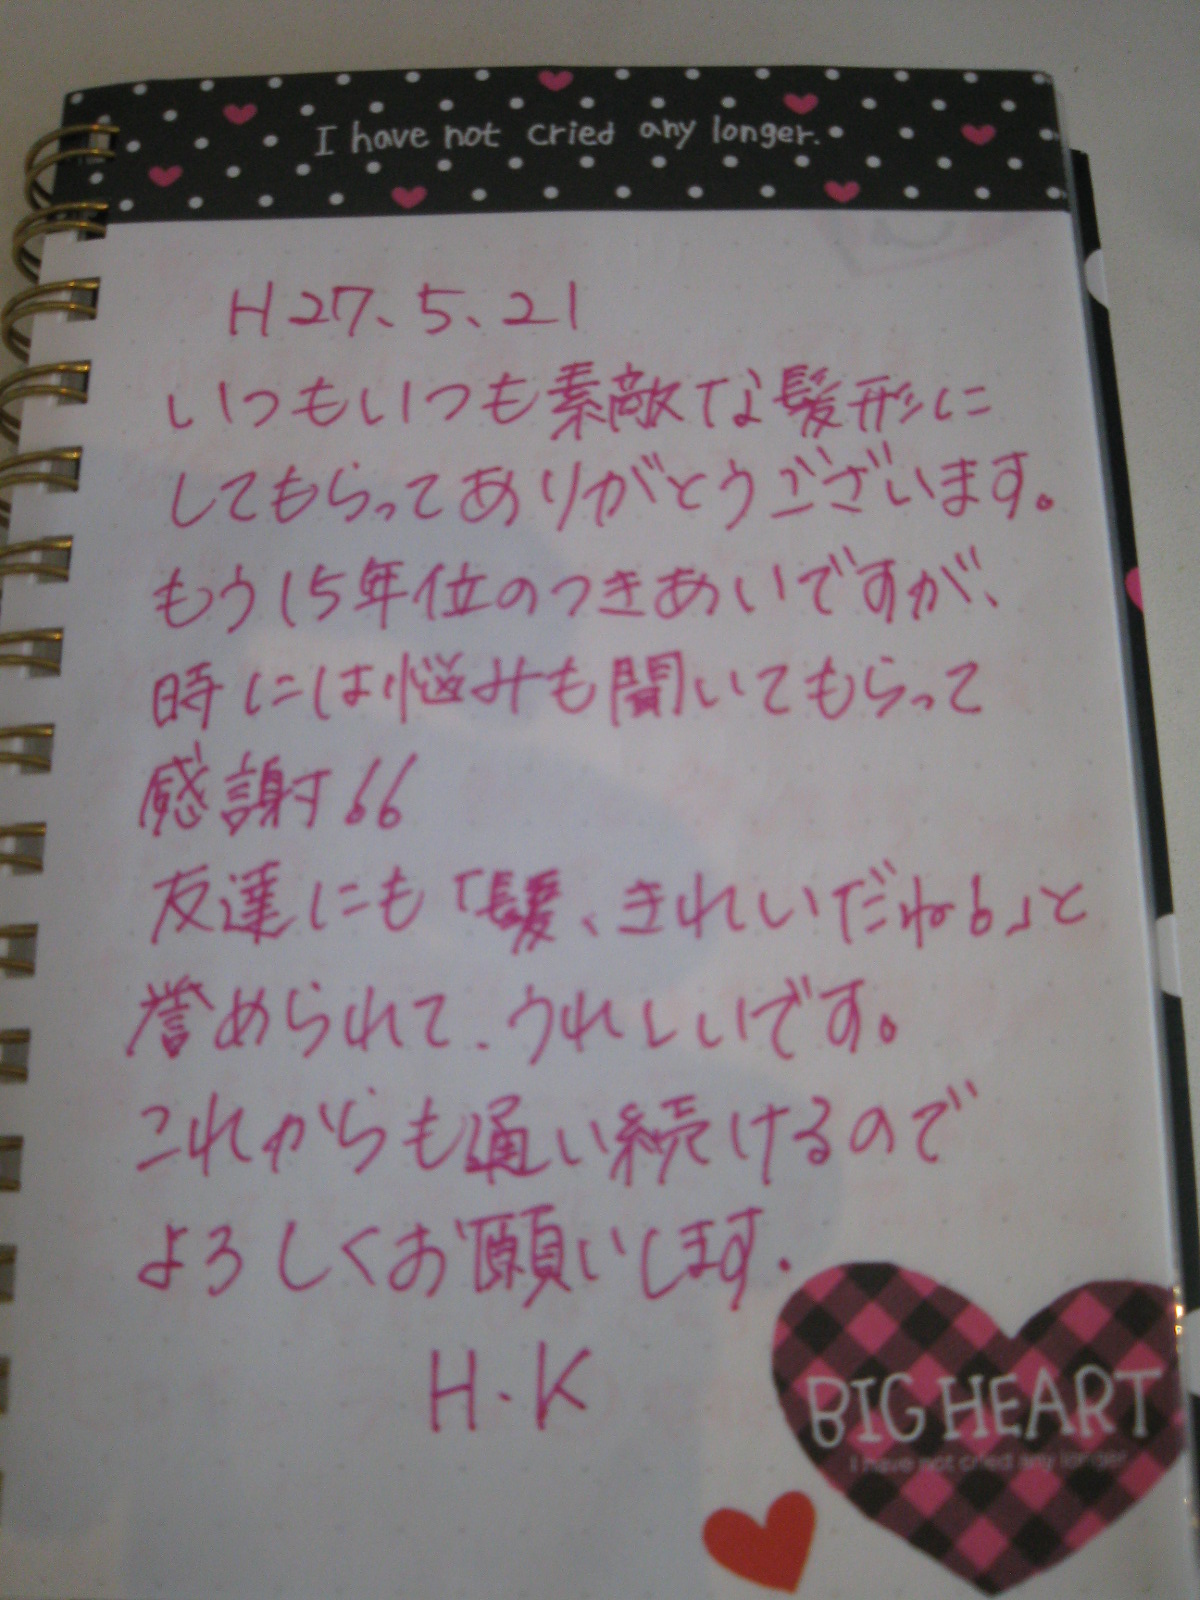 I have not cried any longer.
H27、5、21
いつもいつも素敵な髪形に
してもらってありがとうございます。
もう15年位のつきあいですが、
時には悩みも聞いてもらって
感謝!!
友達にも「髪、きれいだね!」と
誉められて、うれしいです。
これからも通い続けるので
よろしくお願いします。
H・K
BIG HEART
I have not cried any longer